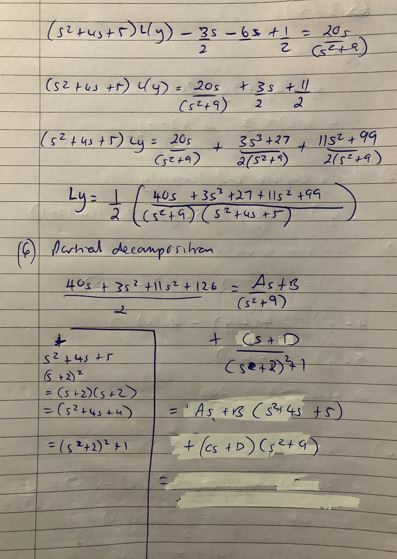 (s²+4s+5) L(y) - 3s/2 - 6s + 1/2 = 20s/(s²+9)
(s²+4s+5) L(y) = 20s/(s²+9) + 3s/2 + 11/2
(s²+4s+5) Ly = 20s/(s²+9) + 3s³+27/2(s²+9) + 11s²+99/2(s²+9)
Ly = 1/2 (40s + 3s³+27+11s²+99/(s²+9)(s²+4s+5))
(6) Partial decomposition
40s + 3s²+11s²+126/2 = As+B/(s²+9)
+ Cs + D/(s+2)²+1
s²+4s+5
(s+2)²
= (s+2)(s+2)
= (s²+4s+4)
= (s²+2)²+1
= As + B (s²+4s+5)
+ (cs+D)(s²+9)
=